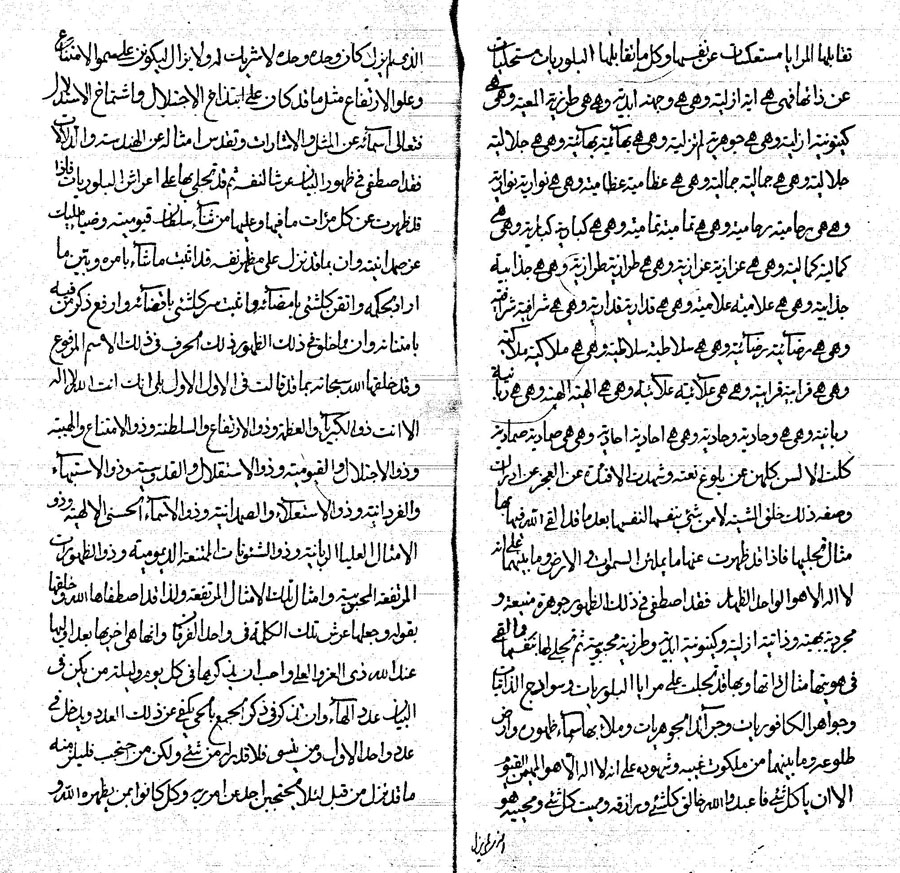 تقابلها المرايا مستعكسات عن نفسها وكل ما تقابلها البلوريات مستجليات
عن ذاتها فهي هي انية ازلية وهي هي وجهة ابدية وهي هي طرزية المعية وهي هي
كينونية ازلية وهي هي جوهرية لم تزلية وهي هي بهائية بهائية وهي هي جلالية
جلالية وهي هي جمالية جمالية وهي هي عظامية عظامية وهي هي نوارية نوارية
وهي هي رحامية رحامية وهي هي تمامية تمامية وهي هي كبارية كبارية وهي هي
كمالية كمالية وهي هي عزازية عزازية وهي هي طرازية طرازية وهي هي جذابية
جذابية وهي هي علامية علامية وهي هي قدارية قدارية وهي هي شرافية شرافية
وهي هي رضائية رضائية وهي هي سلاطية سلاطية وهي هي ملاكية ملاكية
وهي هي قرابية قرابية وهي هي علائية علائية وهي هي الهية الهية وهي هي ربانية
ربانية وهي هي وحادية وحادية وهي هي احادية احادية وهي هي صمادية صمادية
كلت الالسن كلهن عن بلوغ نعته وشهدت الافئدة عن العجز عن ادراك
وصفه ذلك خلق المشية لا من شئ بنفسها لنفسها بعد ما قد القى الله فيها بها
مثال تجليها فاذا قد ظهرت عنها ما يملئن السموات والارض وما بينهما على انه
لا اله الا هو الواحد الظهار فقد اصطفى في ذلك الظهور جوهرة منيعة و
مجردية بهية وذاتية ازلية وكينونية ابدية وطرزية محبوبية ثم تجلى لها بنفسها والقى
في هويتها مثال ذاتها وبها قد تجلت على مرايا البلوريات وسواذج الذاتيات
وجواهر الكافوريات ومجردات الجوهريات وملاء بها سماء ظهوره وارض
طلوعه وما بينهما من ملكوت غيبه وشهوده على انه لا اله الا هو المهيمن القيوم
الا ان يا كل شئ فاعبدوا الله خالق كل شئ ورازقه ومميت كل شئ ومحييه هو
الذي لم يزل
الذي لم يزل كان وحده وحده لا شريك له ولا يزال ليكونن على سمو الامتناع
وعلو الارتفاع مثل ما قد كان على ابتذاخ الاجتلال واشتماخ الاستدلال
فتعالى اسمائه عن المثل والاشارات وتقدس امثاله عن الهندسة والدلالات
فقد اصطفى في ظهور البيان عرشا لنفسه ثم قد تجلى بها على اعراش البلوريات فاذا
قد ظهرت عن كل مرآت ما فيها وعليها من ثناء سلطان قيوميته وضياء مليك
عز صمدانيته وان بما قد نزل على مظهر نفسه قد اثبت ما شاء بامره ويتقن ما
اراد بحكمه واتقن كل شئ بامضائه واثبت سر كل شئ باقضائه وارفع ذكر من فيه
بامتنانه وان مما خلق في ذلك الظهور ذلك الحرف في ذلك الاسم المرفوع
وقد خلقها الله سبحانه بما قد قالت في الاول الاول بلى انك انت الله لا اله
الا انت ذو الكبرياء والعظمة وذو الارتفاع والسلطنة وذو الامتناع والهيبة
وذو الاجتلال والقيومية وذو الاستقلال والقدوسية وذو الاستبهاء
والفردانية وذو الاستعلاء والصمدانية وذو الاسماء الحسنى الالهية وذو
الامثال العليا الربانية وذو الشئونات الممتنعة الديمومية وذو الظهورات
المرتفعة المحبوبية وامثال تلك الامثال المرتفعة ولذا قد اصطفاها الله وخلقها
بقوله وجعلها عرش تلك الكلمة في واحد الفرقان وانها هي اخرها بعد اولها
عند الله ذي العز والعلى واحب ان يذكرها في كل يوم وليلة من يكن في
البيان عدد الهاء وان يذكر في ذكر الجميع بالحي يكفي عن ذلك العدد ويدخل في
عدد واحد الاول ومن نسى فلا قدر له من شئ ولكن من احتجب فليلزمنه
ما قد نزل من قبل لئلا يحتجبن احد عن امر ربه وكل كانوا بمن يظهره الله و